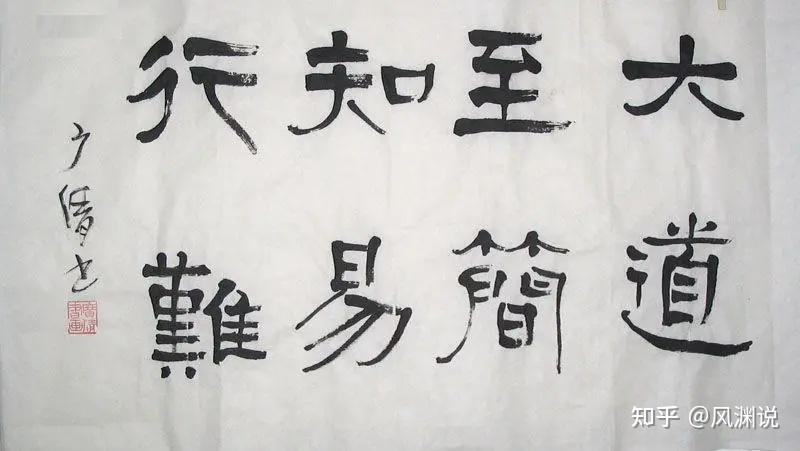 大道
至簡
知易
行難
知乎 @风渊说